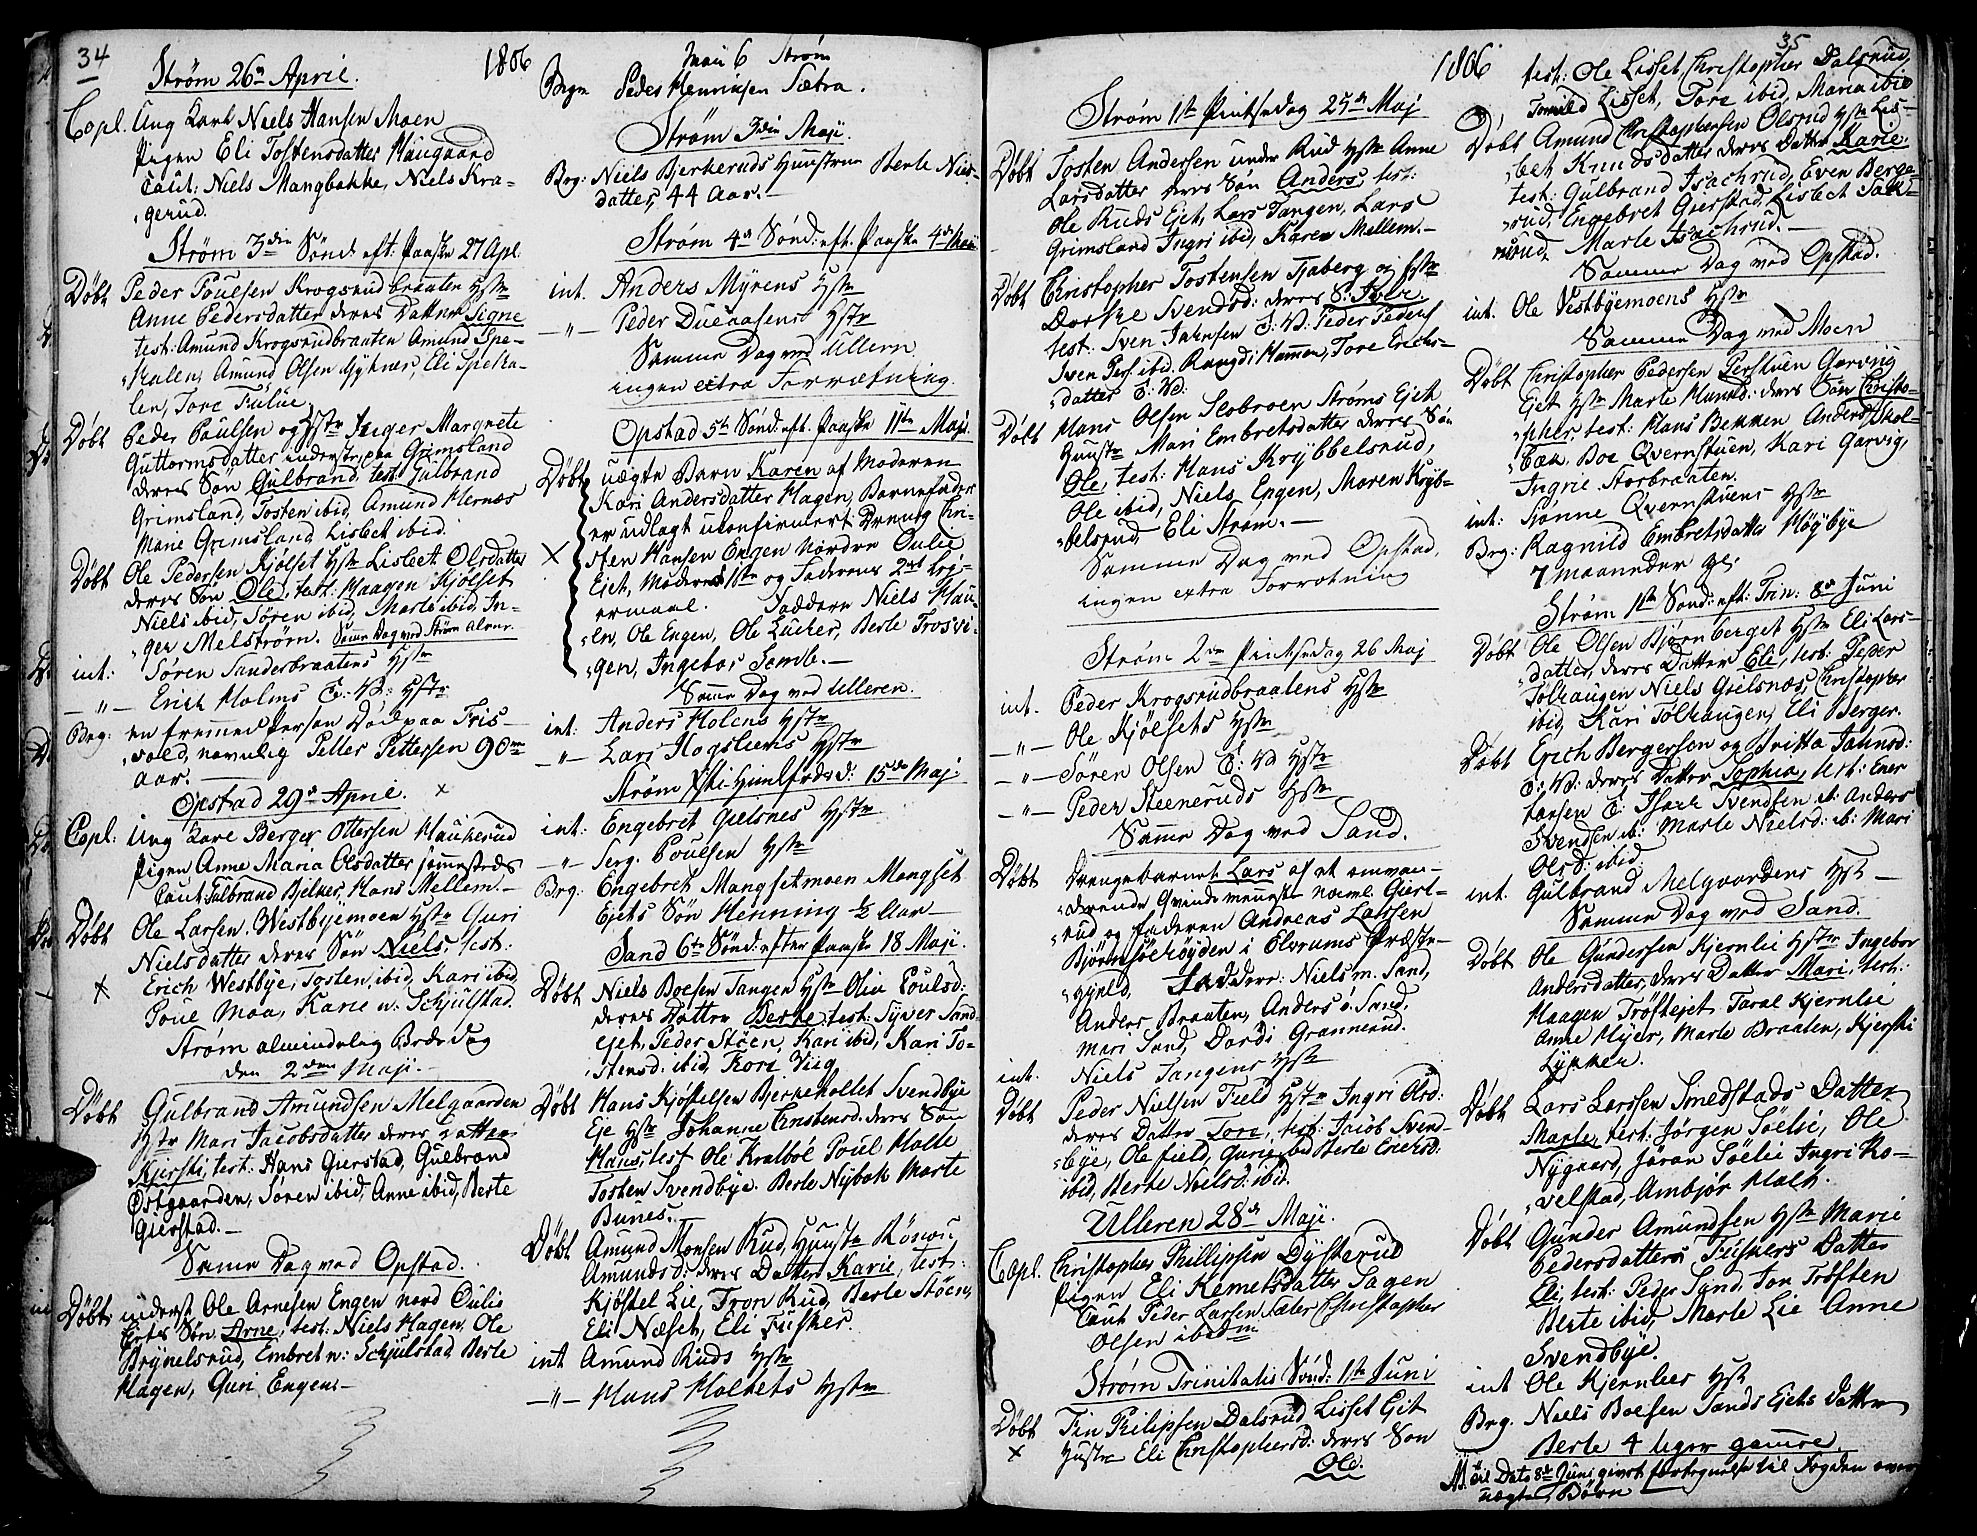 34
1806
Strøm 26de April.
Copl. Ung Karl Niels Hansen Moen
Pigen Eli Tostensdatter Haugaard
Caut: Niels Mangbakke, Niels Kra-
gerud.
Strøm 3die Sønd. eft. Paaske 27 Apl.
Døbt Peder Poulsen Krogsrudbraaten Hstr
Anne Pedersdatter deres Datter Signe
test: Amund Krogsrudbraaten Amund Spe-
kalen, Amund Olsen, Eli Speka-
len, Tore Fulue
Døbt Peder Paulsen og Hstr Inger Margrete
Guttormsdatter inderster paa Grimsland
deres Søn Gulbrand, test: Gulbrand
Grimsland, Tosten ibid, Amund Hernæs
Marie Grimsland Lisbet ibid.
Døbt Ole Pedersen Kjølset Hstr Lisbet Olsdatter
deres Søn Ole, test: Haagen Kjølset
Niels ibid, Søren ibid, Marte ibid, In-
ger Melstrøm. Same Dag ved Strøm
int: Søren Sanderbraatens Hstr
-"- Erich Holms E: V: Hstr
Beg: en fremmed Person Død paa Tris-
vold, navnlig Petter Pettersen 90
aar.
Opstad 29de April. x
Copl: Ung Karl Berger Ottersen Haukerud
Pigen Anne Maria Olsdatter sammesteds
Caut: Gulbrand Bekker, Hans Mellem.
Døbt Ole Larsen Westbyemoen Hstr Guri
Nielsdatter deres Søn Niels, test:
x Erich Westbye, Tosten ibid, Kari ibid,
Poul Moa, Karie n: Schjulstad.
Strøm almindelig Bededag
den 2den Maji.
Døbt Gulbrand Amundsen Melgaarden
Hstr Mari Jacobsdatter deres Datter
Kjersti, test: Hans Gierstad, Gulbrand
Østgaarden, Søren ibid, Anne ibid, Berte
Gierstad.
Same Dag ved Opstad.
Døbt inderst Ole Arnesen Engen nord Oulie
Ejets Søn Arne, test: Niels Hagen, Ole
Brynelsrud, Embret n: Schjulstad Berte
Hagen, Guri Engen.
Maii 6 Strøm
Begr Peder Henriksen Sætra.
Strøm 3die Maji.
Beg: Niels Bjerkeruds Huustrue Berte Niels-
datter, 44 Aar.
Strøm 4de Sønd: eft. Paaske 4de Maji
int. Anders Myrens Hstr
-"- Peder Hstr
Samme Dag ved Ullern
ingen extra Forretning.
Opstad 5te Sønd: eft. Paaske 11te Maji.
Døbt uægte Barn Karen af Moderen
Kari Andersdatter Hagen, Barnefader
er udlagt ukonfirmert Dreng Chri-
x sten Hansen Engen Nordre Oulie
Ejet, Moderens 1ste og Faderens 2det Lej-
ermaal. Faddere Niels Hau-
en, Ole Engen, Ole Lucher, Berte Trosvi-
gen, Ingebor Somb.
Same Dag ved Ulleren.
int: Anders Holens Hstr
-"- Lars Hogsliens Hstr
Strøm Xsti Himlfærds d: 15de Maj:
int: Engebret Gielsnes Hstr
-"- Serg. Pouelsen Hstr
Beg: Engebret Mangsetmoen Mangset
Ejets Søn Henning ½ Aar
Sand 6te Sønd: efter Paaske 18 Maji.
Døbt Niels Boesen Tangen Hstr Olia Poulsd:
deres Datter Berte, test: Syver Sand-
ejet, Peder Støen, Kari ibid, Kari To-
stensd. ibid, Tore Viig
Døbt Hans Kjøstelsen Berkeholtet Svendbye
Eje Hstr Johanne Christensd: deres Søn
Hans, test Ole Kralbøl Poul Holte
Tosten Svendbye. Berte Nybak Marte
Bunes.
Døbt Amund Monsen Rud, Huustr
Amundsd: deres Datter Karie, test:
Kjøstel Lie, Tron Rud, Berte Støen,
Eli Næset, Eli Fusker.
int Amund Ruds Hstr
-"- Hans Holtets Hstr
35
1806
Strøm 1ste Pintsedag 25de Maj
Døbt Tosten Andersen under Rud Hstr Anne
Larsdatter deres Søn Anders, test:
Ole Ruds Ejet, Lars Tangen, Lars
Grimsland Ingri ibid, Karen Mellem.
Døbt Christopher Tostensen Tjaberg og Hstr
Dorthe Svendsd: deres S: Iver,
test: Sven Jahnsen E: V: Peder Peders
Iven Pers. ibid, Rangdi Hammen, Tore Erichs-
datter E: V:
Døbt Hans Olsen Slobroen Strøms Ejet
Huustr Mari Embretsdatter deres Søn
Ole, test: Hans Krybbelsrud,
Ole ibid, Niels Engen, Maren Kryb-
belsrud, Eli Strøm.
Samme Dag ved Opstad,
ingen extra Forretning
Strøm 2den Pintsedag 26 Maj
int. Peder Krogsrudbraatens Hstr
-"- Ole Kjølsets Hstr
-"- Søren Olsen E: V: Hstr
-"- Peder Keeneruds Hstr
Same Dag ved Sand.
Døbt Drengebarnet Lars af et omvan-
drende Qvindemenneske navnl. Giert-
rud og faderen Andreas Larssen
Bjørnsøehøyden i Elverums Præste-
gield, Faddere: Niels m. Sand,
Anders Braaten, Anders ø: Sand,
Mari Sand, Dordi Grannerud.
int. Niels Tangens Hstr
Døbt Peder Nielsen Field Hstr Ingri Olsd:
deres Datter Tore, test: Jacob Sven-
bye, Ole field, Guri ibid Berte Erichsd:
ibid, Berte Nielsd: ibid.
Ulleren 28de Maji.
Copl. Christopher Phillipsen Dysterud
Pigen Eli Kemetsdatter Sagen
Caut Peder Larsen Sæter Christopher
Olsen ibidem
Strøm Trinitatis Sønd: 1ste Juni
Døbt Fin Philipsen Dalsrud Lisset Ejet
x Hustr Eli Christophersd: deres Søn
Ole.
test: Ole Lisset, Christopher Dalsrud,
Tomild Lisset, Tore ibid, Maria ibid
Døbt Amund Christophersen Olsrud Hstr Lis-
bet Knudsdatter deres Datter Karie,
test: Gulbrand Isachrud, Even Berge-
rud, Engebret Gierstad, Lisbet Isak-
rud, Marte Isachrud.
Samme Dag ved Opstad.
int. Ole Vestbyemoens Hstr
Samme Dag ved Moen
Døbt Christopher Pedersen Perstuen Garvig
Ejet Hstr Marte deres Søn Christo-
pher, test: Hans Bekken Anders Skol-
bæk. Boe Qvernstuen, Kari Garvig,
Ingrie Storbraaten.
int: Sjønne Qvernstuens Hstr
Beg: Ragnild Embretsdatter Høybye
7 maaneder gl.
Strøm 1ste Sønd: eft: Trin: 8de Juni
Døbt Ole Olsen Bjørnberget Hstr Eli Lars-
datter, deres Datter Eli, test: Peder
Tolhaugen Niels Gielsnæs, Christopher
ibid, Kari Tolhaugen, Eli Berger.
Døbt Erich Bergersen og Britta Jahnsd:
E: V: deres Datter Sophia, test: Ener
Larsen E: Isach Svendsen ib: Anders
Svendsen ib: Marte Nielsd: ib: Mari
Olsd: ibid.
int. Gulbrand Melgaardens Hstr
Samme Dag ved Sand.
Døbt Ole Gundersen Kjernlie Hstr Ingebor
Andersdatter, deres Datter Mari, test:
Haagen Trøftejet Taral Kjernlie
Anne Myer, Marte Braaten, Kjersti
Lykken.
Døbt Lars Larssen Smedstads Datter
Marte, test: Jørgen Søelie, Ole
Nygaard, Jøran Søelie Ingri Ko-
velstad, Ambjør Holt.
Døbt Gunder Amundsen Hstr Marie
Pedersdatters Fuskers Datter
Eli, test: Peder Sand, Jon Trøften
Berte ibid, Marte Lie Anne
Svendbye.
int Ole Kjernlies Hstr
Beg. Niels Boesen Sands Ejets Datter
Berte 4 Uger gamle.
NB. til Dato 8de Juni givet fortegnelse til Fogden over
uægte Børn